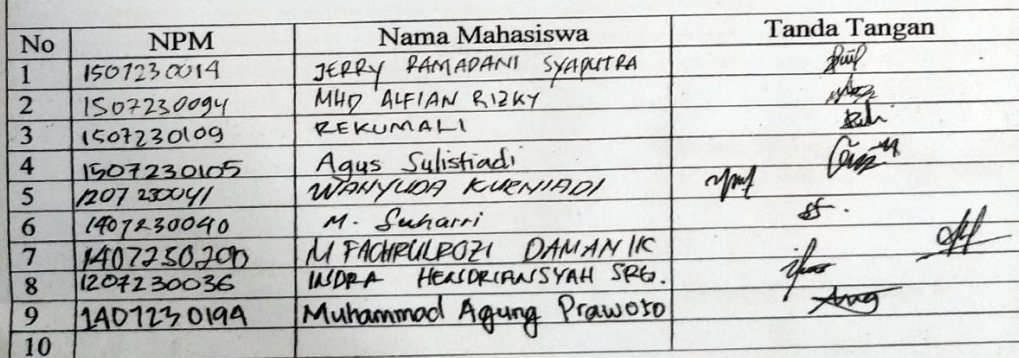 No NPM Nama Mahasiswa Tanda Tangan
1 1507230014 JERRY RAMADANI SYAPUTRA
2 1507230094 MHD ALFIAN RIZKY
3 1507230109 REKUMALI
4 1507230105 Agus Sulistiadi
5 1207230041 WAHYUDA KURNIADI
6 1407230040 M. Suharri
7 1407230200 M FACHRULROZI DAMANIK
8 1207230036 INDRA HENDRIANSYAH SRG.
9 1407230194 Muhammad Agung Prawoso
10